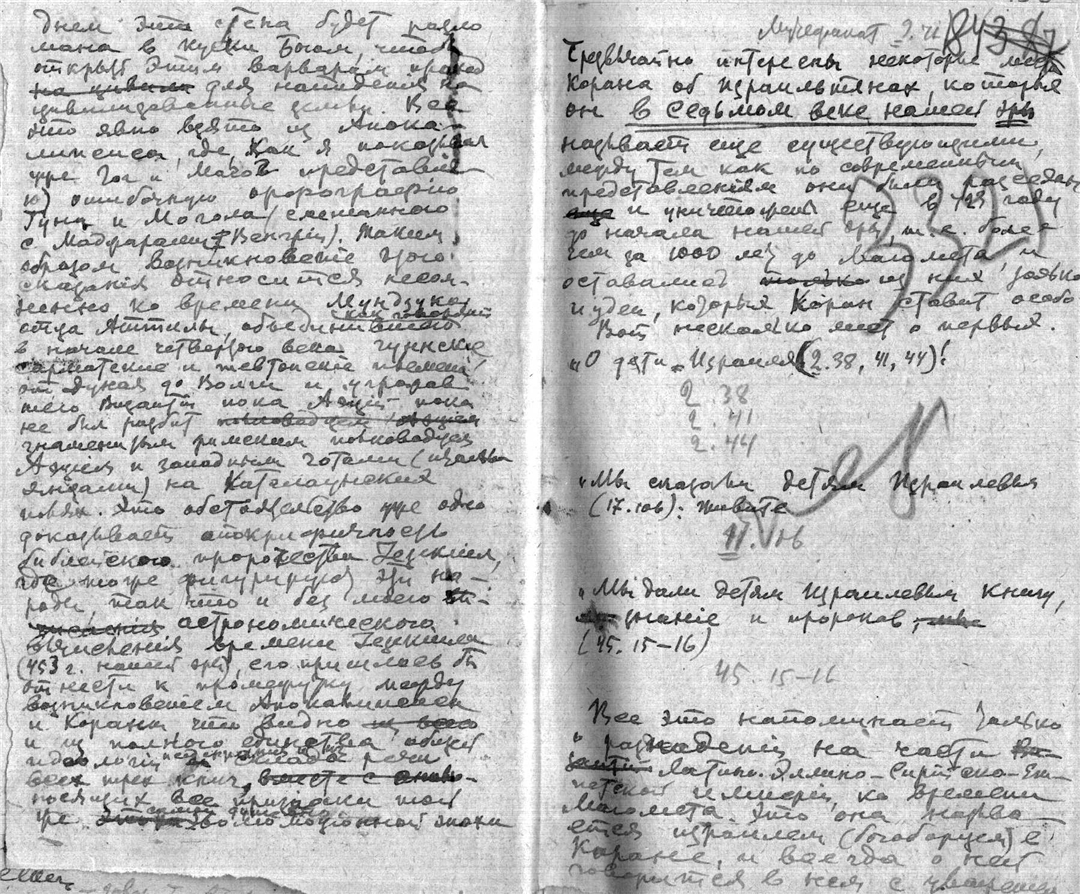 днем эта стена будет разло
мана в куски Богом, чтоб
открыть этим варварам проход
для нападения на
цивилизованные земли. Все
это явно взято из Апока-
липсиса, где, как я показывал
уже Гог и Магог представля
ю) ошибочную орфографию
Гунна и Могола (смешанного
с Мадьярами Венгріи). Таким
образом возникновение этого
сказанія относится несом-
ненно ко времени Мундзука
отца Аттилы, объединившего
в начале четвертого века гуннские
сарматские и тевтонские племена
от Дуная до Волги и угрожав
шего Византіи пока Аттил пока
не был разбит полководцем
знаменитым римским полководцем
Аэцием и западными готами
на Каталаунских
полях. Это обстоятельство уже одно
доказывает апокрифичность
библейского пророчества Іезекіиля,
где тоже фигурируют эти на-
роды, так что и без моего
астрономического
вычисления времени Іезекіиля
(453 г. нашей эры), его пришлось бы
отнести к промежутку между
возникновением Апокалипсиса
и Корана что видно из всего
и из полного единства общей
идеологіи и склада речи
всех трех книг, вместе с
носящих все признаки той
же эволюционной эпохи
843
Чрезвычайно интересны некоторые места
Корана об израильтянах, которых
он в седьмом веке нашей эры
называет еще существующими,
между тем как по современным
представлениям они были рассеяны
еще и уничтожены еще в 723 году
до начала нашей эры, т.е. более
чем за 1000 лет до Магомета и
оставались только из них только
иудеи, которых Коран ставит особо
Вот несколько мест о первых.
„О дети Израиля (2.38, 41, 44)!
2.38
2.41
2.44
330
„Мы сказали детям Израилевым
(17.106): живите
17.106
„Мы дали детям Израилевым Книгу,
знаніе и пророков,
(45. 15–16)
45. 15–16
Все это напоминает только
распаденіи на части
Латино-Эллино-Сирійско-Еги
петской имперіи, ко времени
Магомета. Это она называ
ется израилем (богоборцем) в
Коране, и всегда о ней
говорится в нем с уваженіем